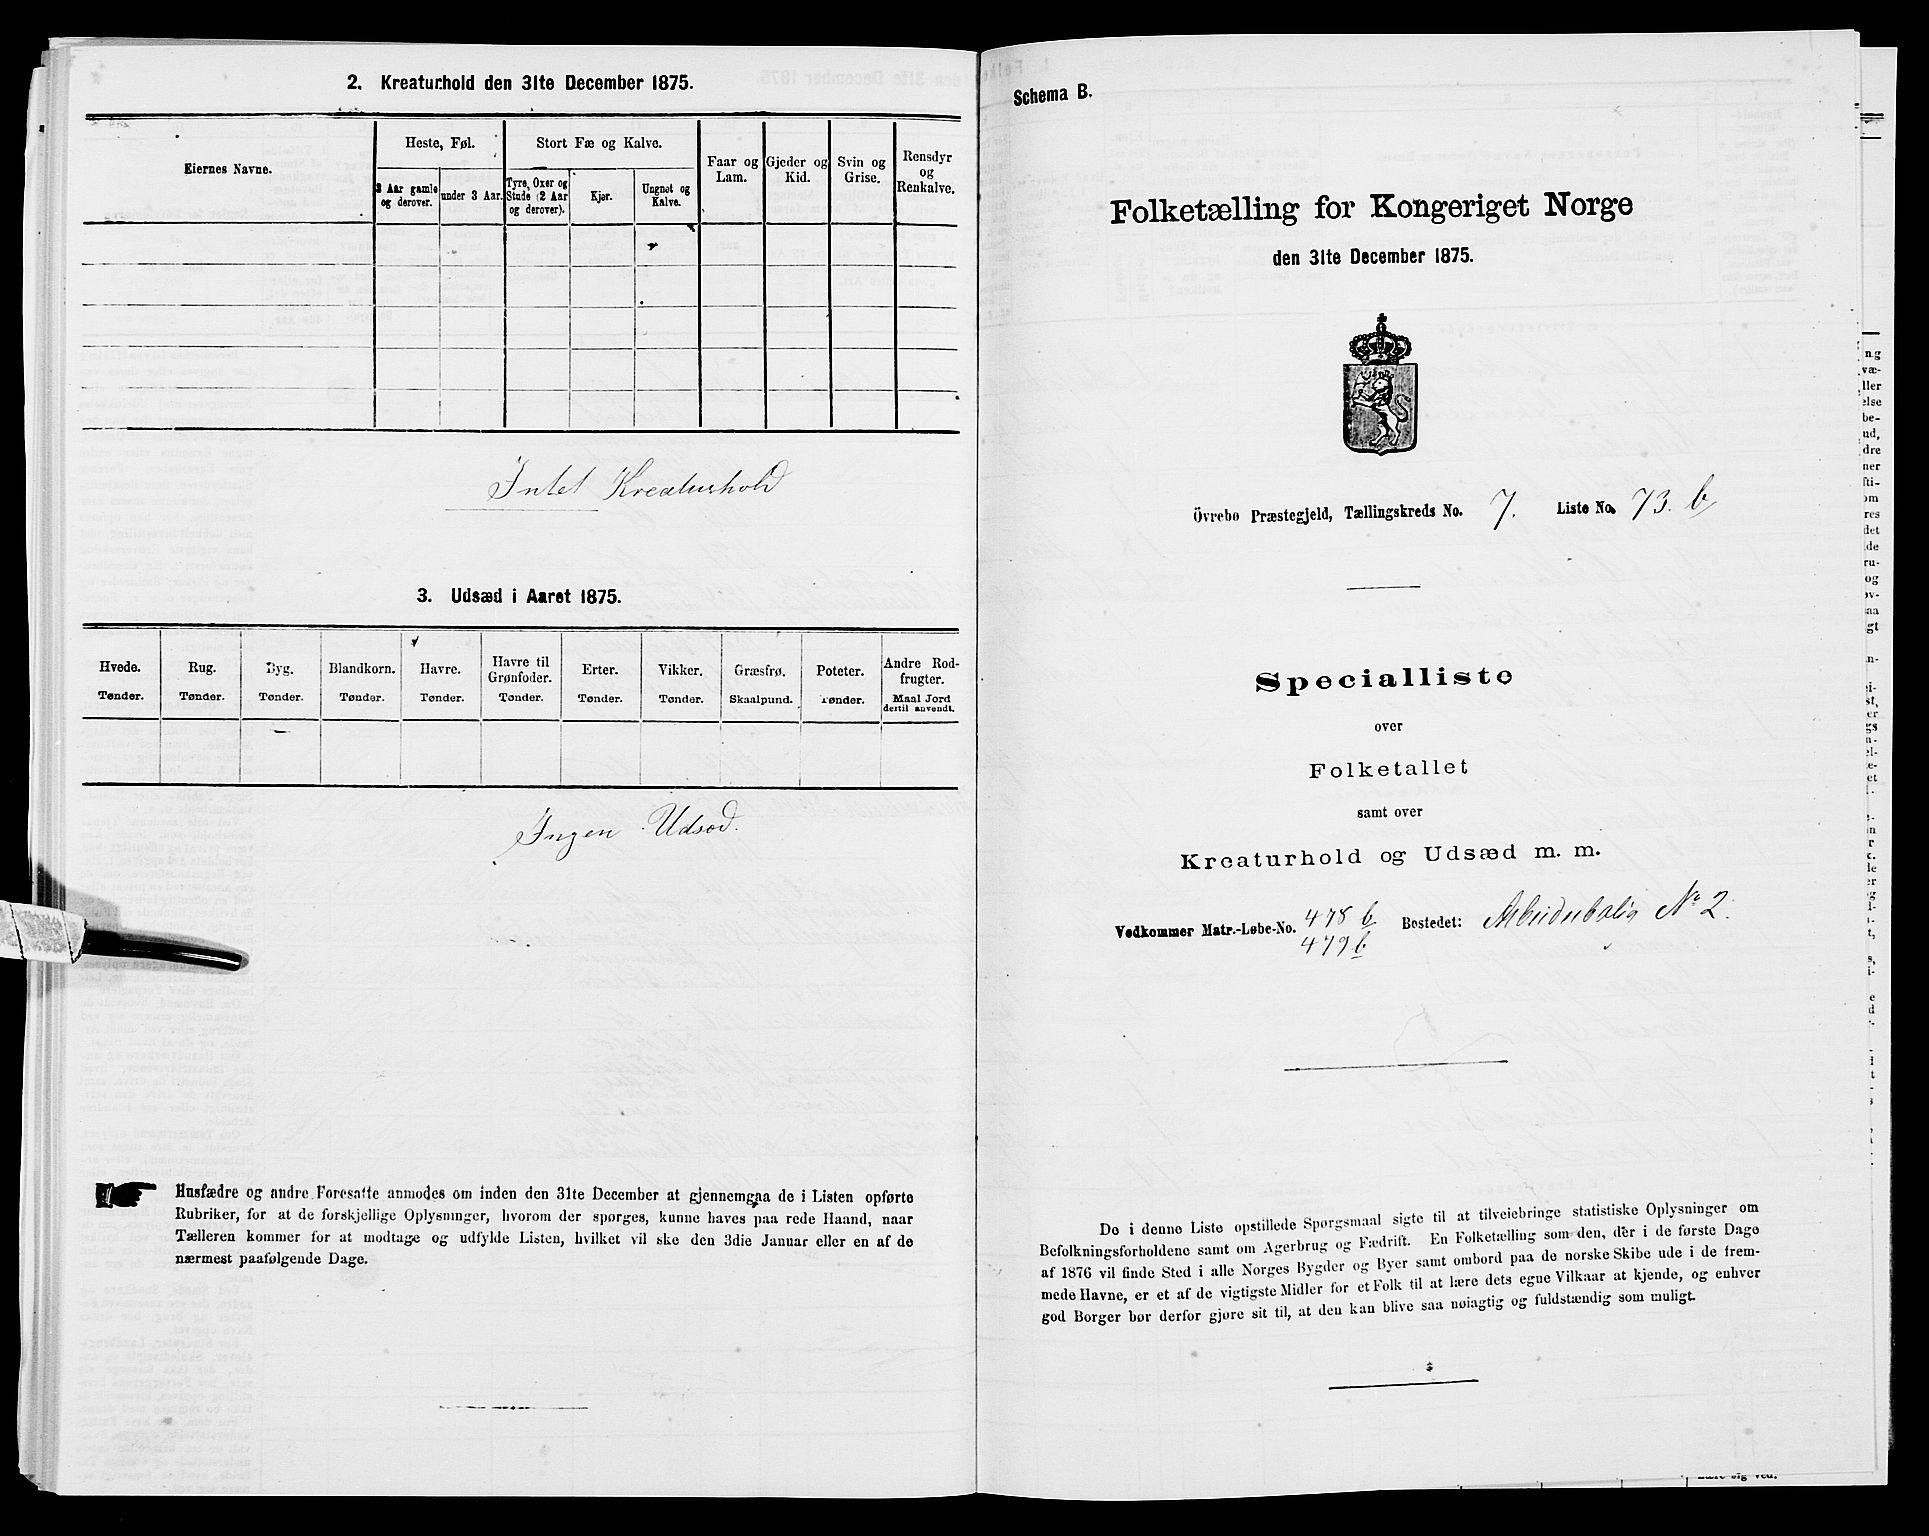 2. Kreaturhold den 31te December 1875.
Eiernes Navne.
Heste, Føl.
3 Aar gamle og derover.
under 3 Aar.
Stort Fæ og Kalve.
Tyre, Oxer og Stude (2 Aar og derover).
Kjør.
Ungnøt og Kalve.
Faar og Lam.
Gjeder og Kid.
Svin og Grise.
Rensdyr og Renkalve.
Intet Kreaturhold
3. Udsæd i Aaret 1875.
Hvede. Tønder.
Rug. Tønder.
Byg. Tønder.
Blandkorn. Tønder.
Havre. Tønder.
Havre til Grønfoder. Tønder.
Erter. Tønder.
Vikker. Tønder.
Græsfrø. Skaalpund.
Poteter. Tønder.
Andre Rodfrugter. Maal Jord dertil anvendt.
Ingen Udsæd.
Husfædre og andre Foresatte anmodes om inden den 31te December at gjennemgaa de i Listen opførte
Rubriker, for at de forskjellige Oplysninger, hvorom der spørges, kunne haves paa rede Haand, naar
Tælleren kommer for at modtage og udfylde Listen, hvilket vil ske den 3die Januar eller en af de
nærmest paafølgende Dage.
Schema B.
Folketælling for Kongeriget Norge
den 31te December 1875.
Övrebø Præstegjeld, Tællingskreds No. 7. Liste No. 73. b
Specialliste
over
Folketallet
samt over
Kreaturhold og Udsæd m. m.
Vedkommer Matr.-Løbe-No. 478 b Bostedet: Arbeiderbolig No 2.
479 b
De i denne Liste opstillede Spørgsmaal sigte til at tilveiebringe statistiske Oplysninger om
Befolkningsforholdene samt om Agerbrug og Fædrift. En Folketælling som den, der i de første Dage
af 1876 vil finde Sted i alle Norges Bygder og Byer samt ombord paa de norske Skibe ude i de frem-
mede Havne, er et af de vigtigste Midler for et Folk til at lære dets egne Vilkaar at kjende, og enhver
god Borger bør derfor gjøre sit til, at den kan blive saa nøiagtig og fuldstændig som muligt.